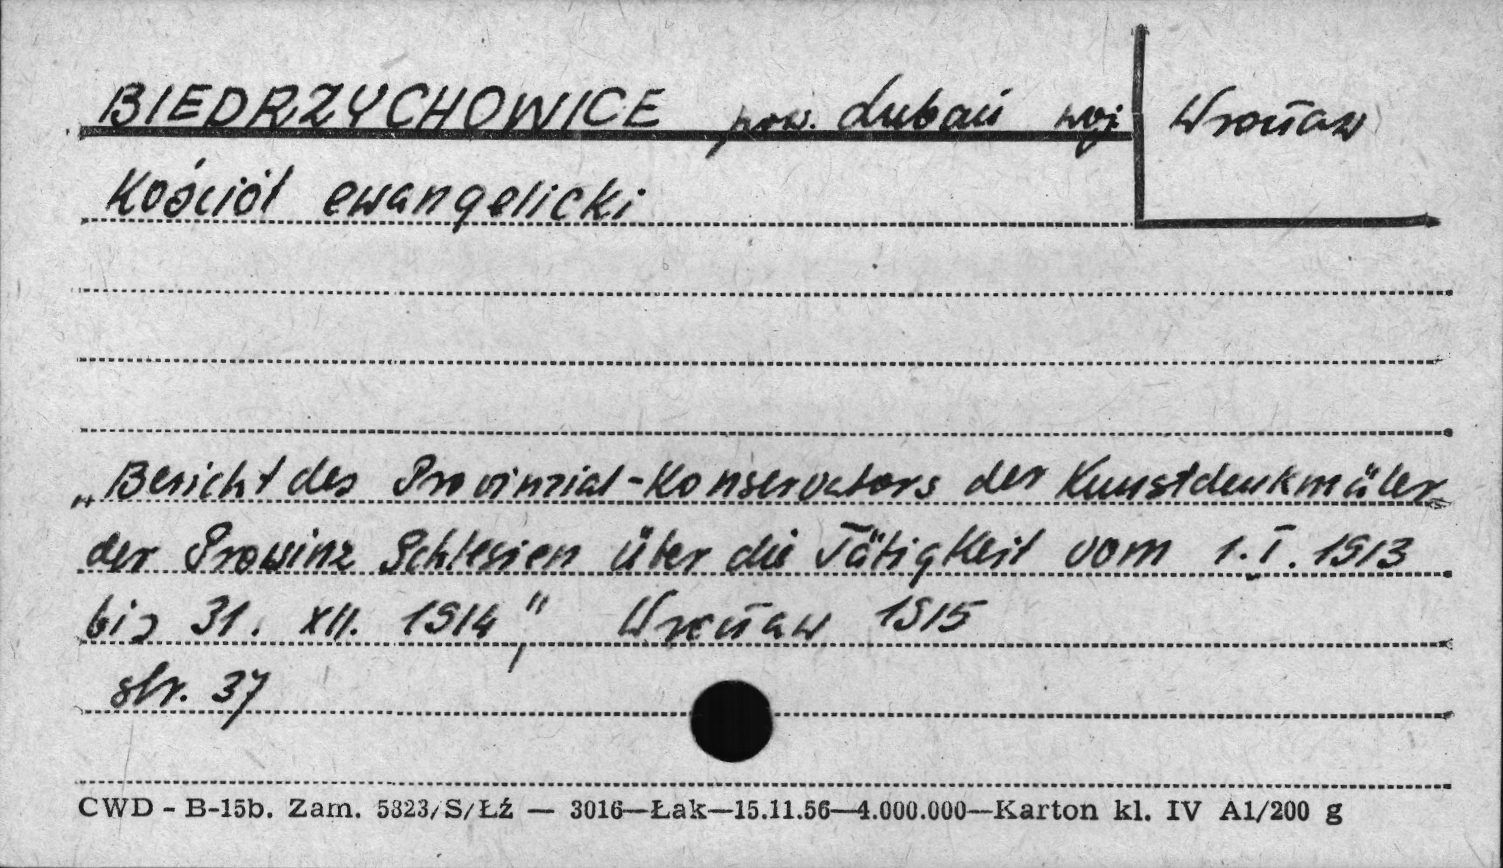 BIEDRZYCHOWICE pow. Lubań woj. Wrocław
Kościół ewangelicki
„Bericht des Provinzial-Konservators der Kunstdenkmäler
der Prowinz Schlesien über die Tätigkeit vom 1.I.1913
bis 31. XII. 1914", Wrocław 1915
str. 37
CWD - B-15b. Zam. 5823/S/Łź — 3016—Łak—15.11.56—4.000.000—Karton kl. IV A1/200 g